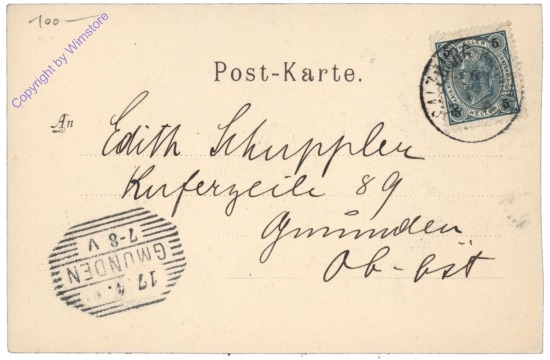 100
Copyright by Wimstore
5 HELLER 5
SALZBURG
Post-Karte.
An
Edith Schuppler
Kuferzeile 89
Gmünden
Ob-öst
GMUNDEN
7-8 V
17. 4.